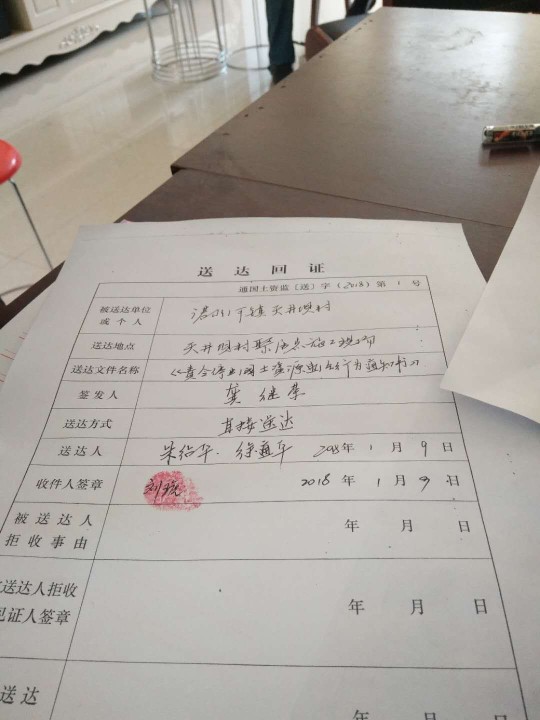 送达回证
通国土管监〔送〕字（2018）第 1 号
被送达单位
或个人
天井坝村
送达地点
天井坝村聚居点施工现场
送达文件名称
《责令停止国土资源违法行为通知书》
签发人
龚继荣
送达方式
直接送达
送达人
朱绍华、徐 2018年 1 月 9 日
收件人签章
刘 2018 年 1 月 9 日
被送达人
拒收事由
年 月 日
送达人拒收
见证人签章
年 月 日
送达
年 月 日